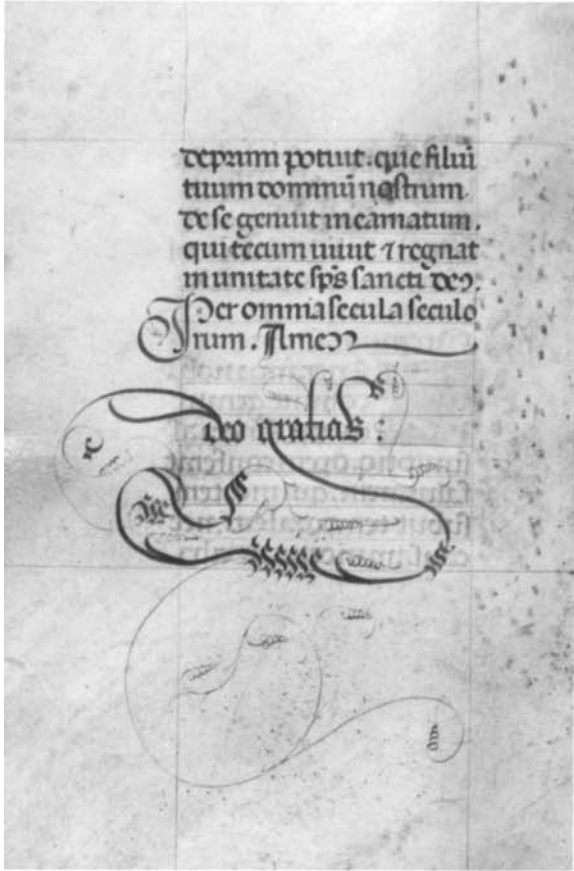 deprimi potuit. que filiū
tuum dominū nostrum
de se genuit incarnatum.
qui tecum uiuit ⁊ regnat
in unitate sp̄s sancti deꝰ.
Per omnia secula seculo
rum. Amen
deo gratias: